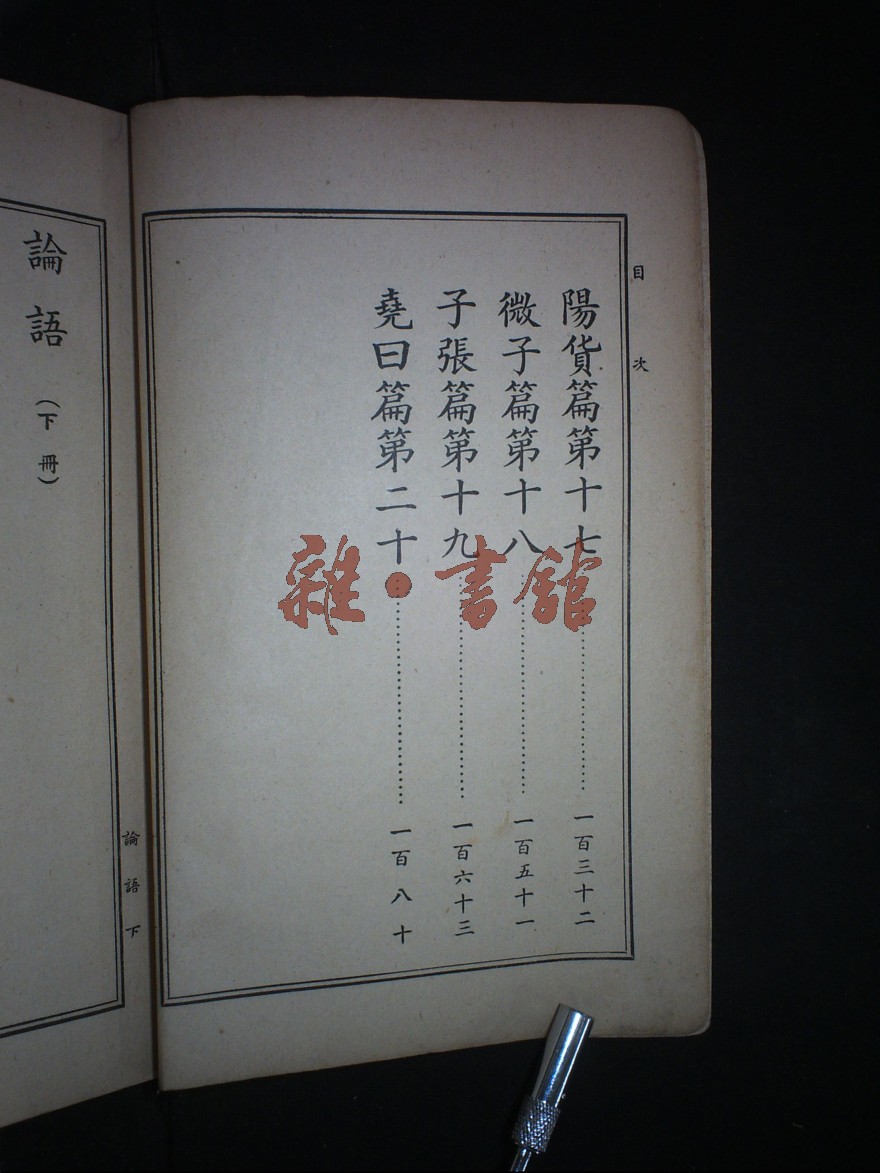 目次
陽貨篇第十七……一百三十二
微子篇第十八……一百五十一
子張篇第十九……一百六十三
堯曰篇第二十……一百八十
論語下
論語（下冊）
雜·書館